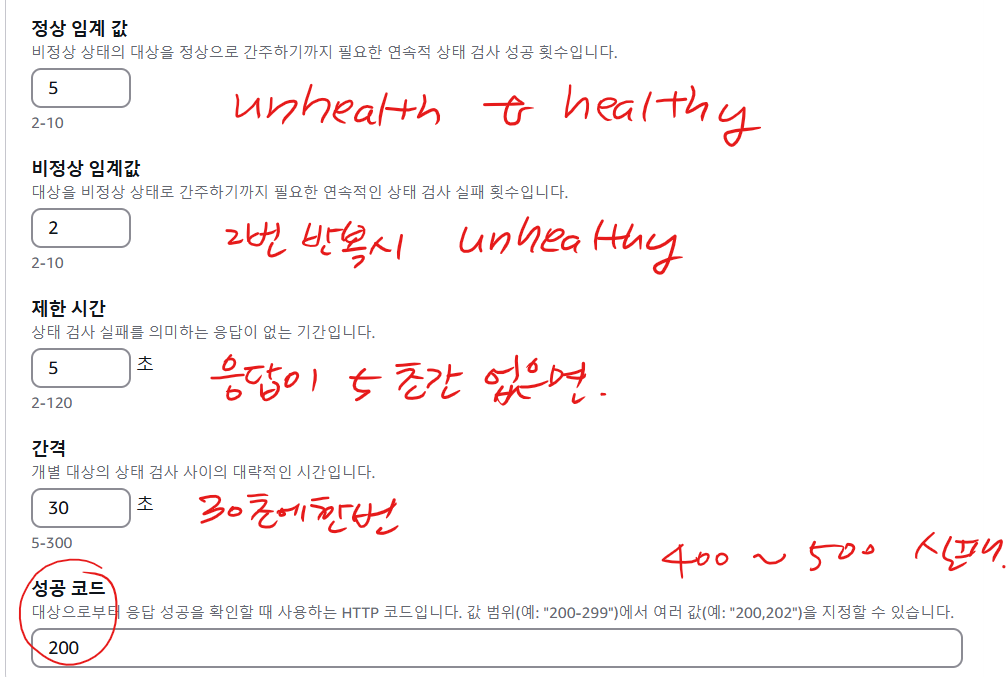 정상 임계 값
비정상 상태의 대상을 정상으로 간주하기까지 필요한 연속적 상태 검사 성공 횟수입니다.
5
unhealth to healthy
2-10
비정상 임계값
대상을 비정상 상태로 간주하기까지 필요한 연속적인 상태 검사 실패 횟수입니다.
2
2번 반복시 unhealthy
2-10
제한 시간
상태 검사 실패를 의미하는 응답이 없는 기간입니다.
5 초
응답이 5 초간 없으면.
2-120
간격
개별 대상의 상태 검사 사이의 대략적인 시간입니다.
30 초
30초에한번
5-300
400 ~ 500 실패.
성공 코드
대상으로부터 응답 성공을 확인할 때 사용하는 HTTP 코드입니다. 값 범위(예: "200-299")에서 여러 값(예: "200,202")을 지정할 수 있습니다.
200